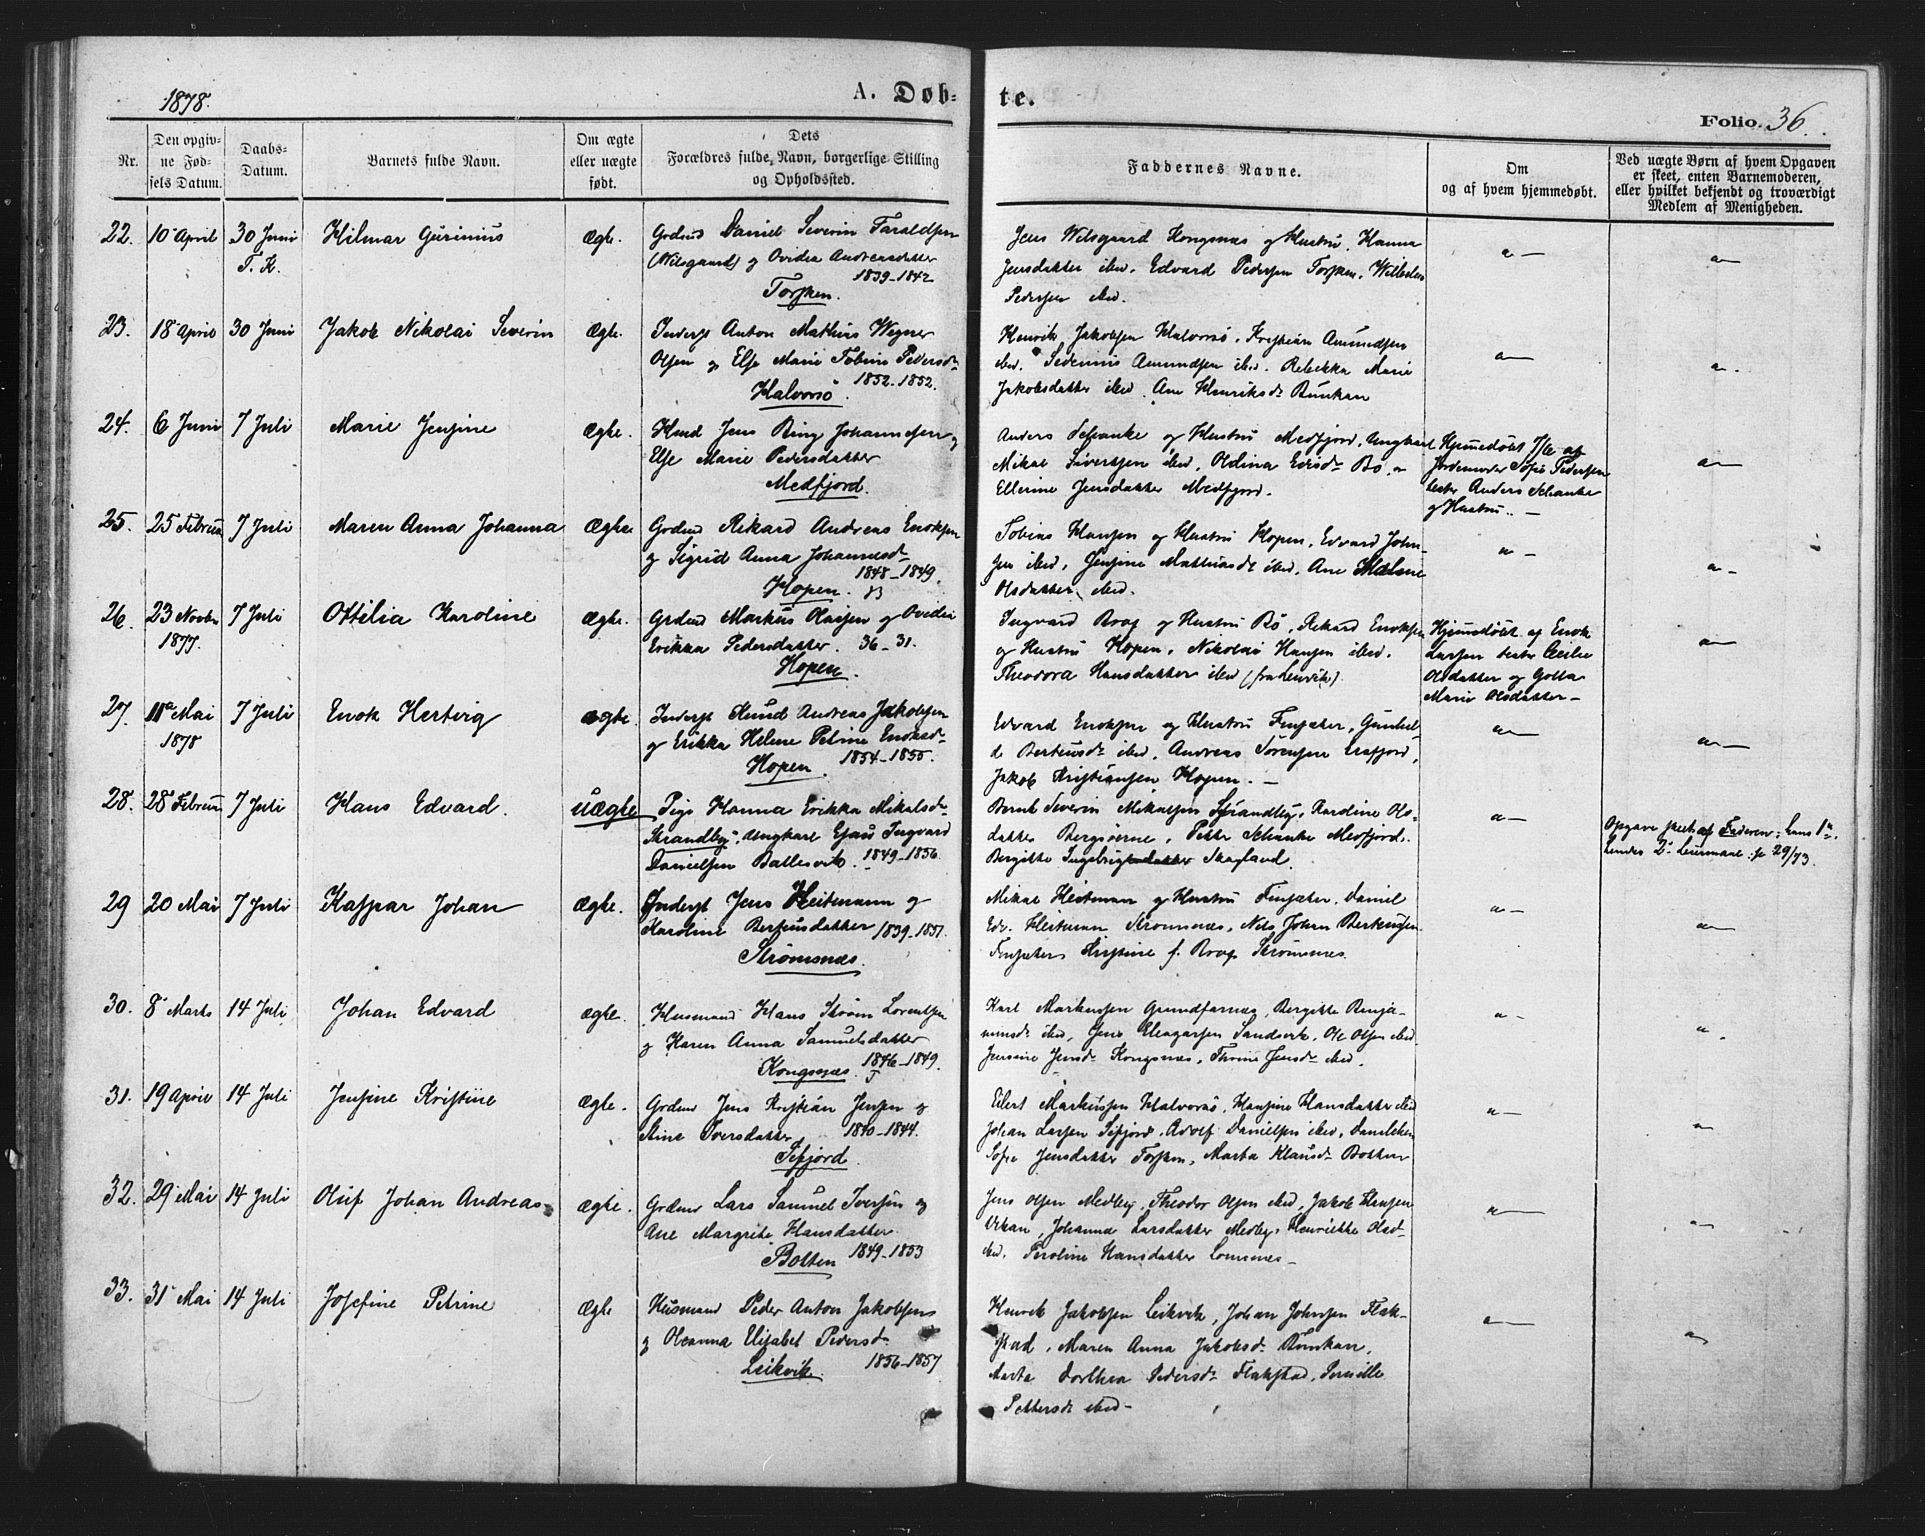 1878.
A. Døb-
te.
Folio. 36.
Nr.
Den opgiv-
ne Fød-
sels Datum.
Daabs-
Datum.
Barnets fulde Navn.
Om ægte
eller uægte
født.
Dets
Forældres fulde Navn, borgerlige Stilling
og Opholdssted.
Faddernes Navne.
Om
og af hvem hjemmedøbt.
Ved uægte Børn af hvem Opgaven
er skeet, enten Barnemoderen,
eller hvilket bekjendt og troværdigt
Medlem af Menigheden.
22. 10 April 30 Juni Hilmar Gurinius Ægte. Daniel Severin Taraldsen
T. K.
(Wilsgaard) og Ovidia Andreasdatter
1839-1842
Torsken.
Jens Wilsgaard Kongsnæs og Hustru, Hanna
Jensdatter ibid. Edvard Pedersen Torsken.
Pedersen ibid.
23. 18 April 30 Juni Jakob Nikolai Severin Ægte. Inderst Anton Mathis Wegner
Olsen og Else Marie Tobine Pedersd-
1852-1852.
Halvorsö.
Henrik Jakobsen Halvorsö, Kristian Amundsen
ibid. Amundsen ibid. Rebekka Marie
Jakobsdatter ibid. Ane Henriksd- Bunkan
24. 6 Juni 7 Juli Marie Jensine Ægte. Jens Ring Johannesen og
Else Marie Pedersdatter
Medfjord.
Anders Schanke og Hustru Medfjord, Ungkarl
Mikal Sivertsen ibid, Oldina Bö,
Ellerine Jensdatter Medfjord.
Hjemmedöbt 7/6 af
Jordemoder Sofie Pedersen
Anders Schanke
og Hustru. -
25. 25 Februar 7 Juli Maren Anna Johanna Ægte. Rikard Andreas Enoksen
og Sigrid Anna Johannesd-
1848-1849.
Hopen.
Tobias Hansen og Hustru Hopen, Edvard John-
sen ibid, Jensine Mathiasd- ibid. Ane Malene
Olsdatter ibid.
26. 23 Novbr 7 Juli Ottilia Karoline Ægte. Markus Olaisen og Ovidia
1877.
Erikka Pedersdatter. 36-31.
Hopen.
Ingvard og Hustru Bö, Rikard Enoksen
og Hustru Hopen, Nikolai Hansen ibid.
Theodora Hansdatter ibid
Hjemmedöbt af Enok
Larsen
Olsdatter og
Marie Olsdatter -
27. 11 Mai 7 Juli Enok Hertvig Ægte. Inderst Knud Andreas Jakobsen
1878
og Erikka Helene Petrine Enoksd-
1854-1855.
Hopen.
Edvard Enoksen og Hustru Finsæter,
ibid, Andreas Sörensen
Jakob Kristiansen Hopen. -
28. 28 Februar 7 Juli Hans Edvard. Uægte Pige Hanna Erikka Mikalsd-
Strandby, Ungkarl Ingvard
Danielsen Ballesvik. 1849-1856.
Bernt Severin Mikalsen Strandby, Karoline Ols-
datter Petter Schanke Medfjord.
Bergitte Ingebrigtsdatter Skagland.
Opgave skeet af Faderen; hans 1ste
hendes 2- Leiermaal. 29/73.
29 20 Mai 7 Juli Kaspar Johan Ægte. Inderst Jens Heitmann og
Karoline Berteusdatter 1839-1851.
Strömsnæs.
Mikal Heitmann og Hustru Finsæter. Daniel
Edv. Heitmann Strömsnæs, Nils Johan Berteusen
Finsæter, Kristine f. Strömsnæs.
30. 8 Marts 14 Juli Johan Edvard Ægte. Husmand Hans Ström Lorentsen
og Karen Anna Samuelsdatter
1846-1849.
Kongsnæs.
Karl Markussen Grundfarnæs, Bergitte Benja-
minsd- ibid, Jens Eleazarsen Sandvik, Ole Olsen ibid.
Jensine Jensd- Kongsnæs, Jensd- ibid.
31. 19 April 14 Juli Jensine Kristine Ægte. Jens Kristian Jensen og
Stine Iversdatter 1840-1844.
Sifjord.
Eilert Markussen Halvorsö, Hansine Hansdatter ibid
Johan Larsen Sifjord, Adolf Danielsen ibid,
Sofie Jensdatter Torsken, Marta Klausd- Botten
32. 29 Mai 14 Juli Oluf Johan Andreas Ægte. Lars Samuel Iversen og
Ane Margrete Hansdatter.
Botten 1849-1853
Jens Olsen Medby, Theodor Olsen ibid, Jakob Hansen
Johanna Larsdatter Medby, Henriette Olsd-
ibid. Hansdatter
33. 31 Mai 14 Juli Josefine Petrine Ægte Husmand Peder Anton Jakobsen
og Oleanna Elisabet Pedersd-
1856-1857
Leikvik.
Henrik Jakobsen Leikvik, Johan Johnsen Flak-
stad, Maren Anna Jakobsd- Bunkan,
Marta Dorthea Pedersd- Flakstad, Pernille
Pettersd- ibid -